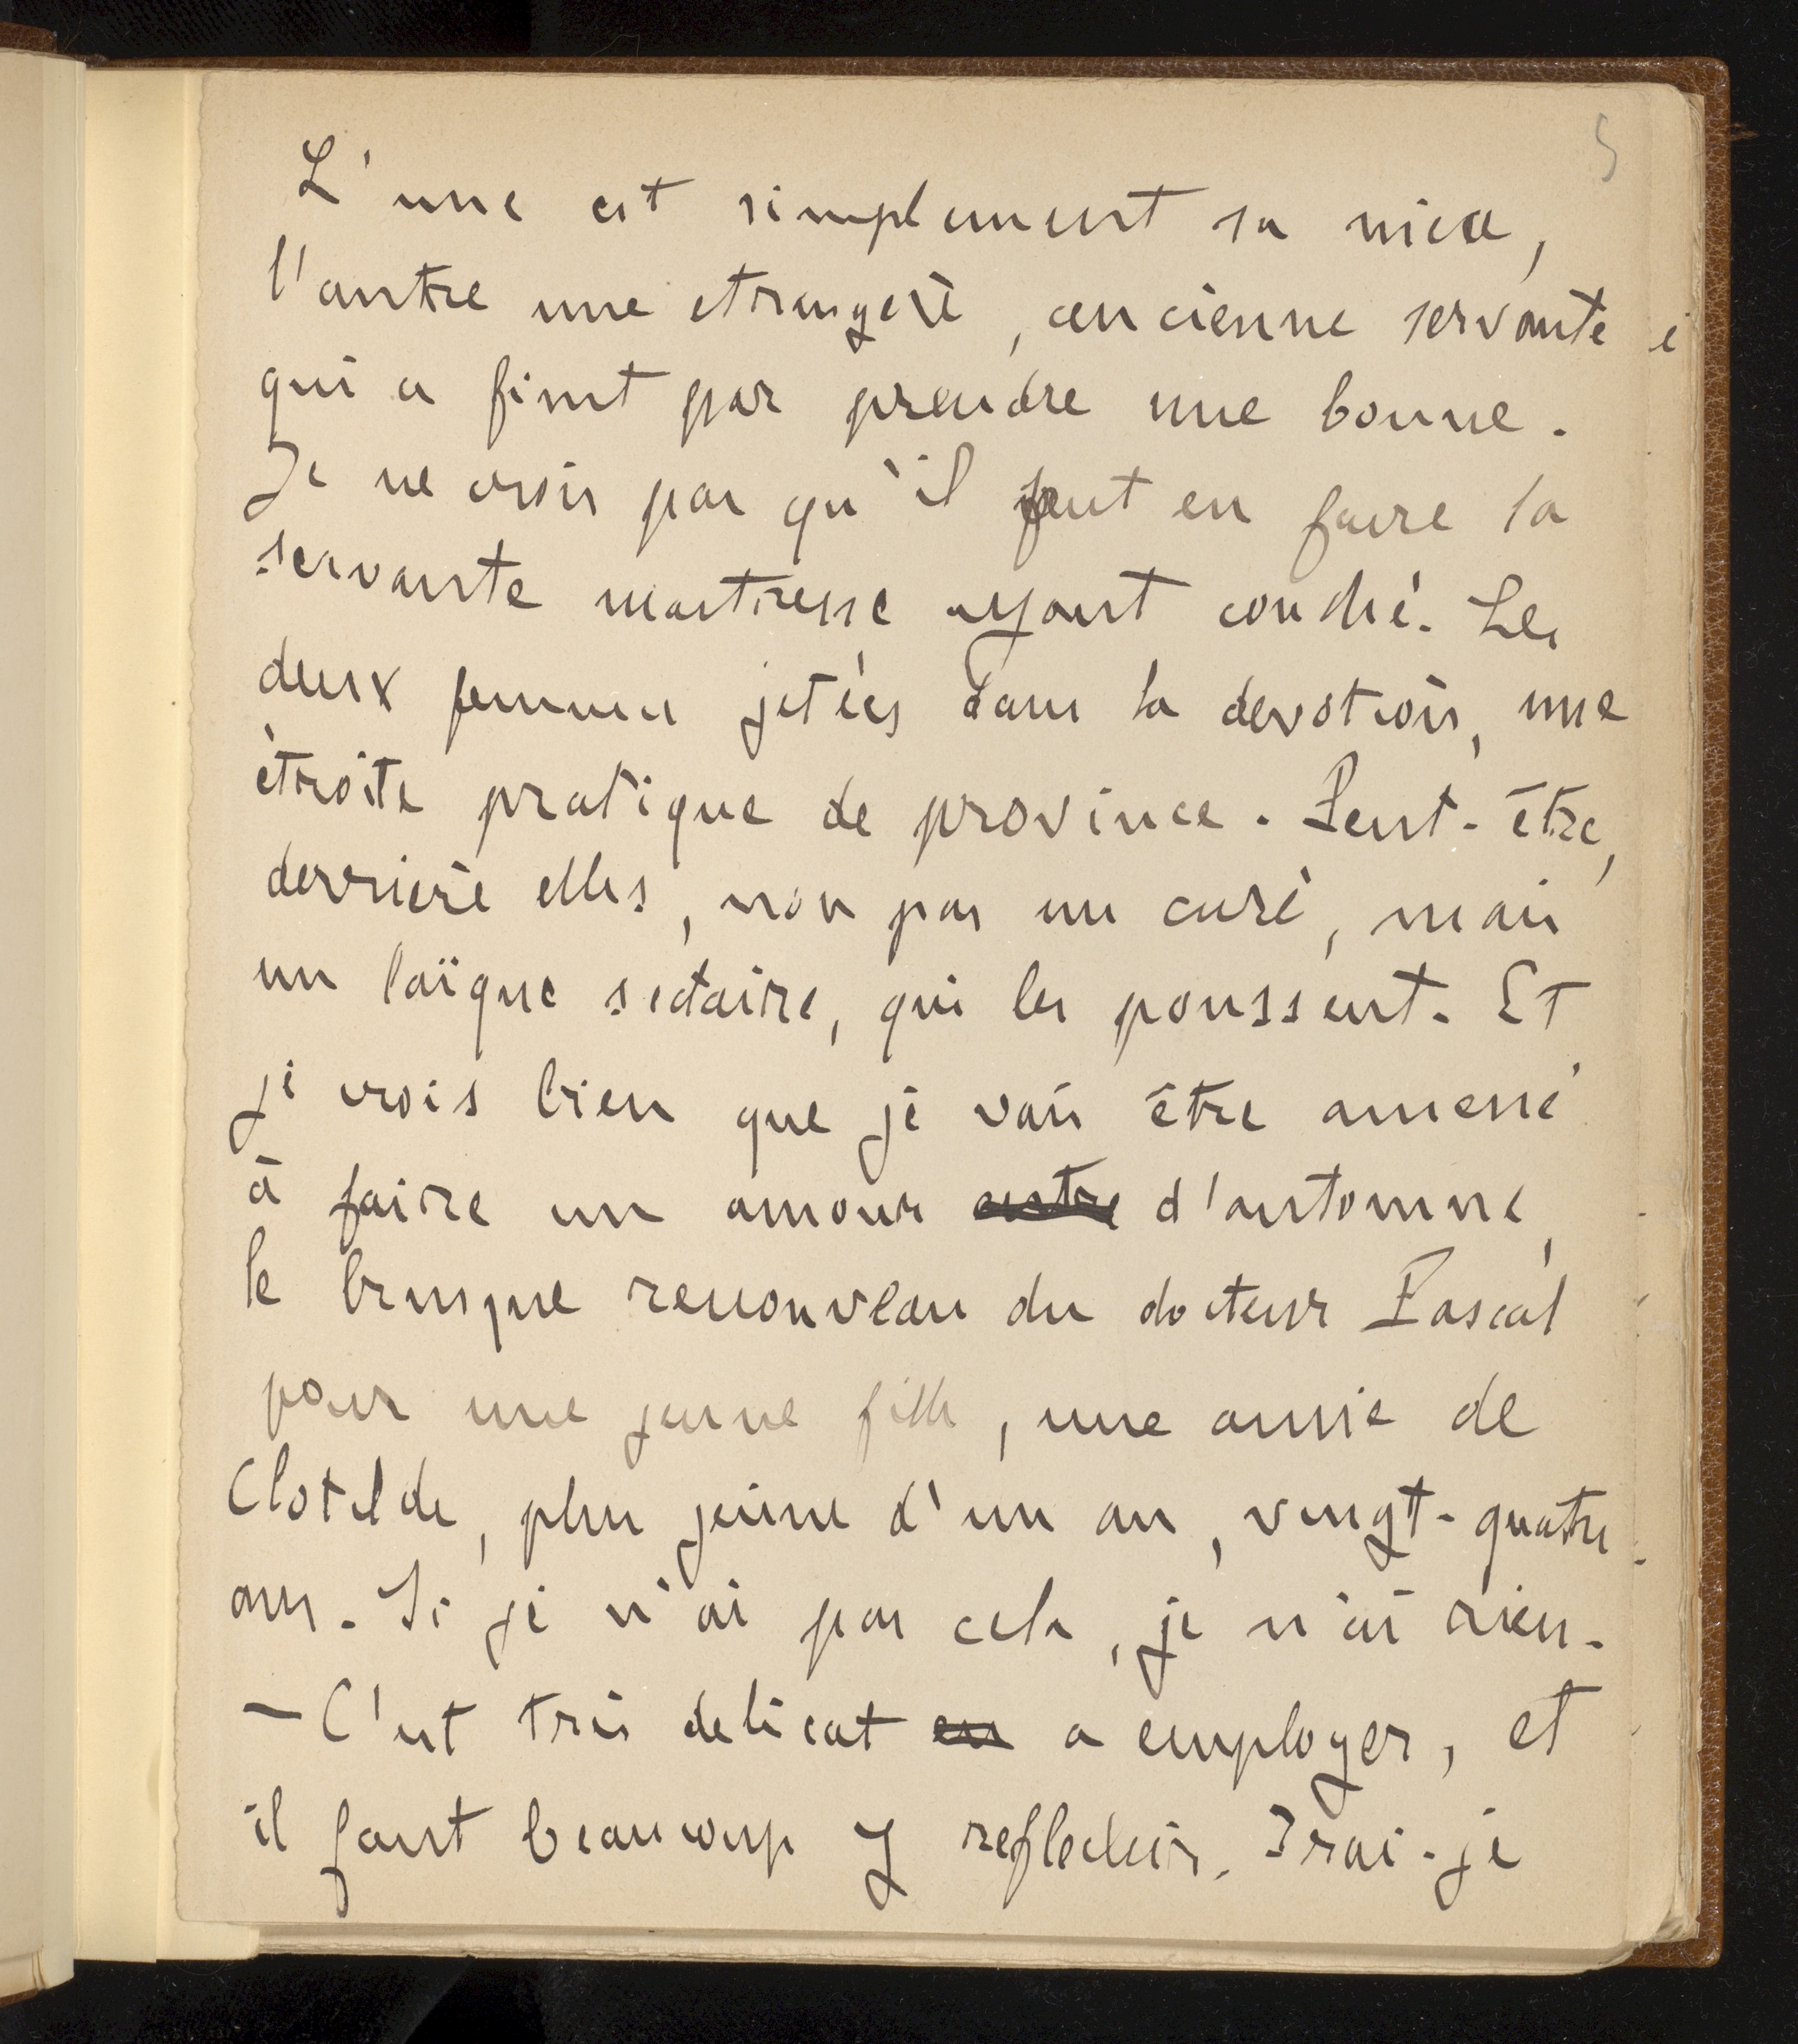 5
L'une est simplement sa nièce,
l'autre une étrangère, ancienne servante
qui a finit par prendre une bonne.
Je ne crois pas qu'il faut en faire la
servante maitresse ayant couché. Les
deux femmes jetées dans la dévotion, une
étroite pratique de province. Peut-être,
derrière elles, non pas un curé, mais
un laïque sectaire, qui les poussent. Et
je crois bien que je vais être amené
à faire un amour entre d'automne,
le brusque renouveau du docteur Pascal
pour une jeune fille, une amie de
Clotilde, plus jeune d'un an, vingt-quatre
ans. Si je n'ai pas cela, je n'ai rien.
— C'est très delicat en a employer, et
il faut beaucoup y reflechir. Irai-je